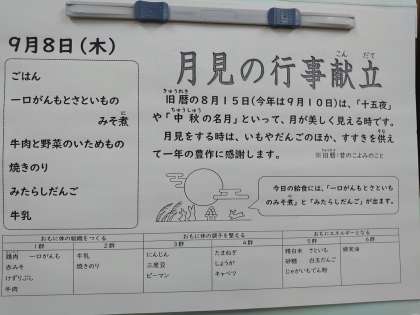 9月8日(木)
ごはん
一口がんもとさといもの
みそ煮
牛肉と野菜のいためもの
焼きのり
みたらしだんご
牛乳
月見の行事献立
旧暦の8月15日(今年は9月10日)は、「十五夜」
や「中秋の名月」といって、月が美しく見える時です。
月見をする時は、いもやだんごのほか、すすきを供え
て一年の豊作に感謝します。
※旧暦:昔のこよみのこと
今日の給食には、「一口がんもとさといも
のみそ煮」と「みたらしだんご」が出ます。
おもに体の組織をつくる
おもに体の調子を整える
おもにエネルギーとなる
1群 2群 3群 4群 5群 6群
鶏肉 一口がんも
赤みそ
けずりぶし
牛肉
牛乳
焼きのり
にんじん
三度豆
ピーマン
たまねぎ
しょうが
キャベツ
精白米 さといも
砂糖 白玉だんご
じゃがいもでん粉